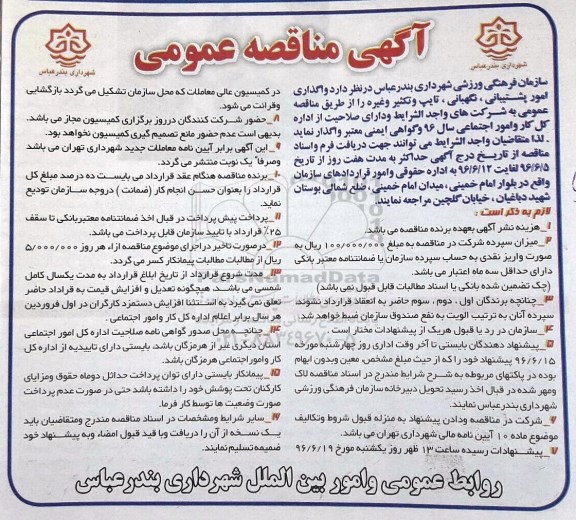 آگهی مناقصه عمومی
شهرداری بندرعباس
شهرداری بندرعباس
سازمان فرهنگی ورزشی شهرداری بندرعباس درنظر دارد واگذاری
امور پشتیبانی ، نگهبانی ، تایپ وتکثیر وغیره را از طریق مناقصه
عمومی به شرکت های واجد الشرایط ودارای صلاحیت از اداره
کل کار وامور اجتماعی سال ۹۶ وگواهی ایمنی معتبر واگذار نماید
. لذا متقاضیان واجد الشرایط می توانند جهت دریافت فرم واسناد
مناقصه از تاریخ درج آگهی حداکثر به مدت هفت روز از تاریخ
۹۶/۶/۵ لغایت ۹۶/۶/۱۲ به اداره حقوقی وامور قراردادهای سازمان
واقع در بلوار امام خمینی ، میدان امام خمینی ، ضلع شمالی بوستان
شهید دباغیان ، خیابان گلچین مراجعه نمایند.
لازم به ذکر است :
۱_ هزینه نشر آگهی بعهده برنده مناقصه می باشد.
۲_ میزان سپرده شرکت در مناقصه به مبلغ ۱۰۰/۰۰۰/۰۰۰ ریال به
صورت واریز نقدی به حساب سپرده سازمان یا ضمانتنامه معتبر بانکی
دارای حداقل سه ماه اعتبار می باشد.
(چک تضمین شده بانکی یا اسناد مطالبات قابل قبول نمی باشد)
۳_ چنانچه برندگان اول ، دوم ، سوم حاضر به انعقاد قرارداد نشوند
سپرده آنان به ترتیب الویت به نفع صندوق سازمان ضبط خواهد شد.
۴_ سازمان در رد یا قبول هریک از پیشنهادات مختار است .
۵_ پیشنهاد دهندگان بایستی تا آخر وقت اداری روز چهارشنبه مورخه
۹۶/۶/۱۵ پیشنهاد خود را که از حیث مبلغ مشخص، معین وبدون ابهام
بوده در پاکتهای مربوطه به شرح شرایط مندرج در اسناد مناقصه لاک
ومهر شده در قبال اخذ رسید تحویل دبیرخانه سازمان فرهنگی ورزشی
شهرداری بندرعباس نمایند.
۶_ شرکت در مناقصه ودادن پیشنهاد به منزله قبول شروط وتکالیف
موضوع ماده ۱۰ آیین نامه مالی شهرداری تهران می باشد.
۷_ پیشنهادات رسیده ساعت ۱۳ ظهر روز یکشنبه مورخ ۹۶/۶/۱۹
در کمیسیون عالی معاملات که محل سازمان تشکیل می گردد بازگشایی
وقرائت می شود.
۸_ حضور شرکت کنندگان درروز برگزاری کمیسیون مجاز می باشد.
بدیهی است عدم حضور مانع تصمیم گیری کمیسیون نخواهد بود.
۹_ این آگهی برابر آیین نامه معاملات جدید شهرداری تهران می باشد
وصرفا" یک نوبت منتشر می گردد.
۱۰_ برنده مناقصه هنگام عقد قرارداد می بایست ده درصد مبلغ کل
قرارداد را بعنوان حسن انجام کار (ضمانت ) دروجه سازمان تودیع
نماید.
۱۱_ پرداخت پیش پرداخت در قبال اخذ ضمانتنامه معتبربانکی تا سقف
۲۵٪ قرارداد با تایید سازمان قابل پرداخت می باشد.
۱۲_ درصورت تاخیر دراجرای موضوع مناقصه ازاء هر روز ۵/۰۰۰/۰۰۰
ریال از مطالبات مطالبات پیمانکار کسر می گردد.
۱۳_ مدت شروع قرارداد از تاریخ ابلاغ قرارداد به مدت یکسال کامل
شمسی می باشد. هیچگونه تعدیل و افزایش قیمت به قراداد حاضر
تعلق نمی گیرد به استثنا افزایش دستمزد کارگران در اول فروردین
هر سال برابر اعلام اداره کل کار وامور اجتماعی .
۱۴_ چنانچه محل صدور گواهی نامه صلاحیت اداره کل امور اجتماعی
استان دیگری غیر از هرمزگان باشد. بایستی دارای تاییدیه از اداره کل
کار وامور اجتماعی هرمزگان باشد.
۱۵_ پیمانکار بایستی دارای توان پرداخت حداثل دوماه حقوق ومزایای
کارکنان تحت پوشش خود را داشته باشد حتی در صورت عدم پرداخت
صورت وضعیت ها توسط کار فرما.
۱۶_ سایر شرایط ومشخصات در اسناد مناقصه مندرج ومتقاضیان باید
یک نسخه از آن را دریافت وبا قید قبول امضاء وبه پیشنهاد خود
ضمیمه تسلیم نمایند.
روابط عمومی وامور بین الملل شهرداری بندرعباس